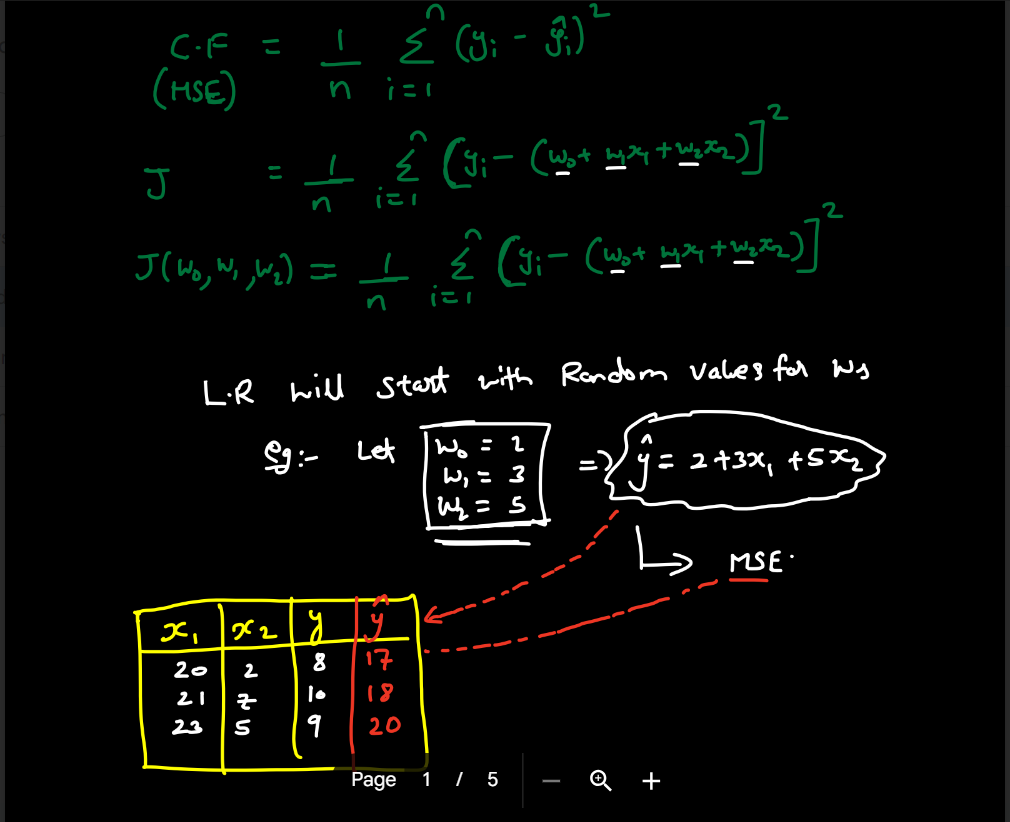 C.F = 1/n Σ i=1 n (yi - ŷi)²
(MSE)
J = 1/n Σ i=1 n [yi - (w₀ + w₁x₁ + w₂x₂)]²
J(w₀, w₁, w₂) = 1/n Σ i=1 n [yi - (w₀ + w₁x₁ + w₂x₂)]²
L.R will start with Random values for ws
eg:- Let w₀ = 2 => ŷ = 2+3x₁ +5x₂
w₁ = 3
w₂ = 5
MSE.
x₁ x₂ y ŷ
20 2 8 17
21 7 10 18
23 5 9 20
Page 1 / 5 — +